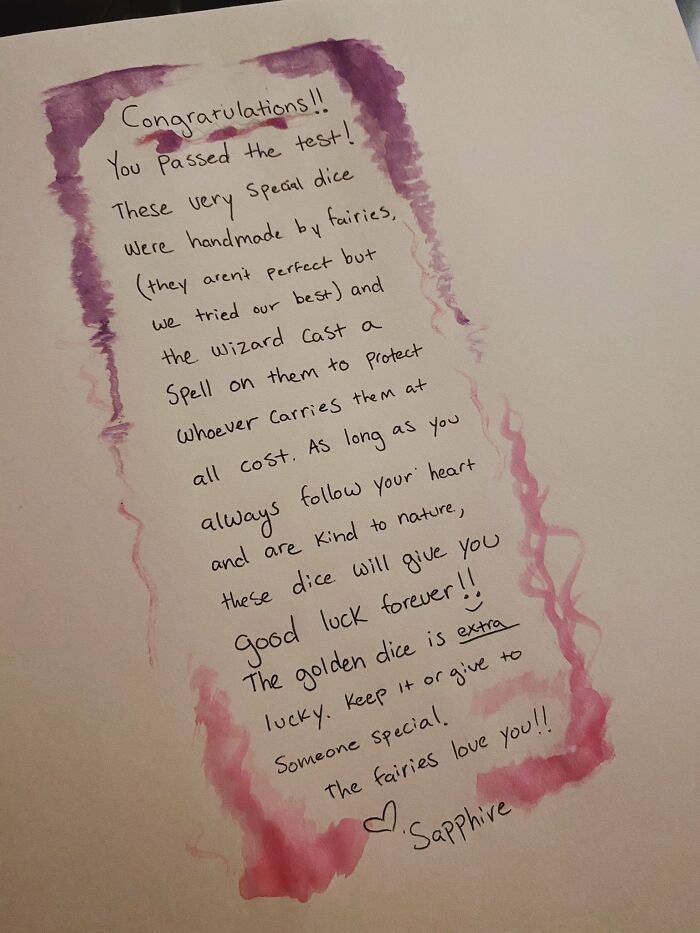 Congratulations!!
You Passed the test!
These very special dice
were handmade by fairies,
(they aren't perfect but
we tried our best) and
the wizard cast a
spell on them to protect
whoever carries them at
all cost. As long as you
always follow your heart
and are kind to nature,
these dice will give you
good luck forever!!
The golden dice is extra
lucky. Keep it or give to
Someone special.
The fairies love you!!
♡. Sapphire